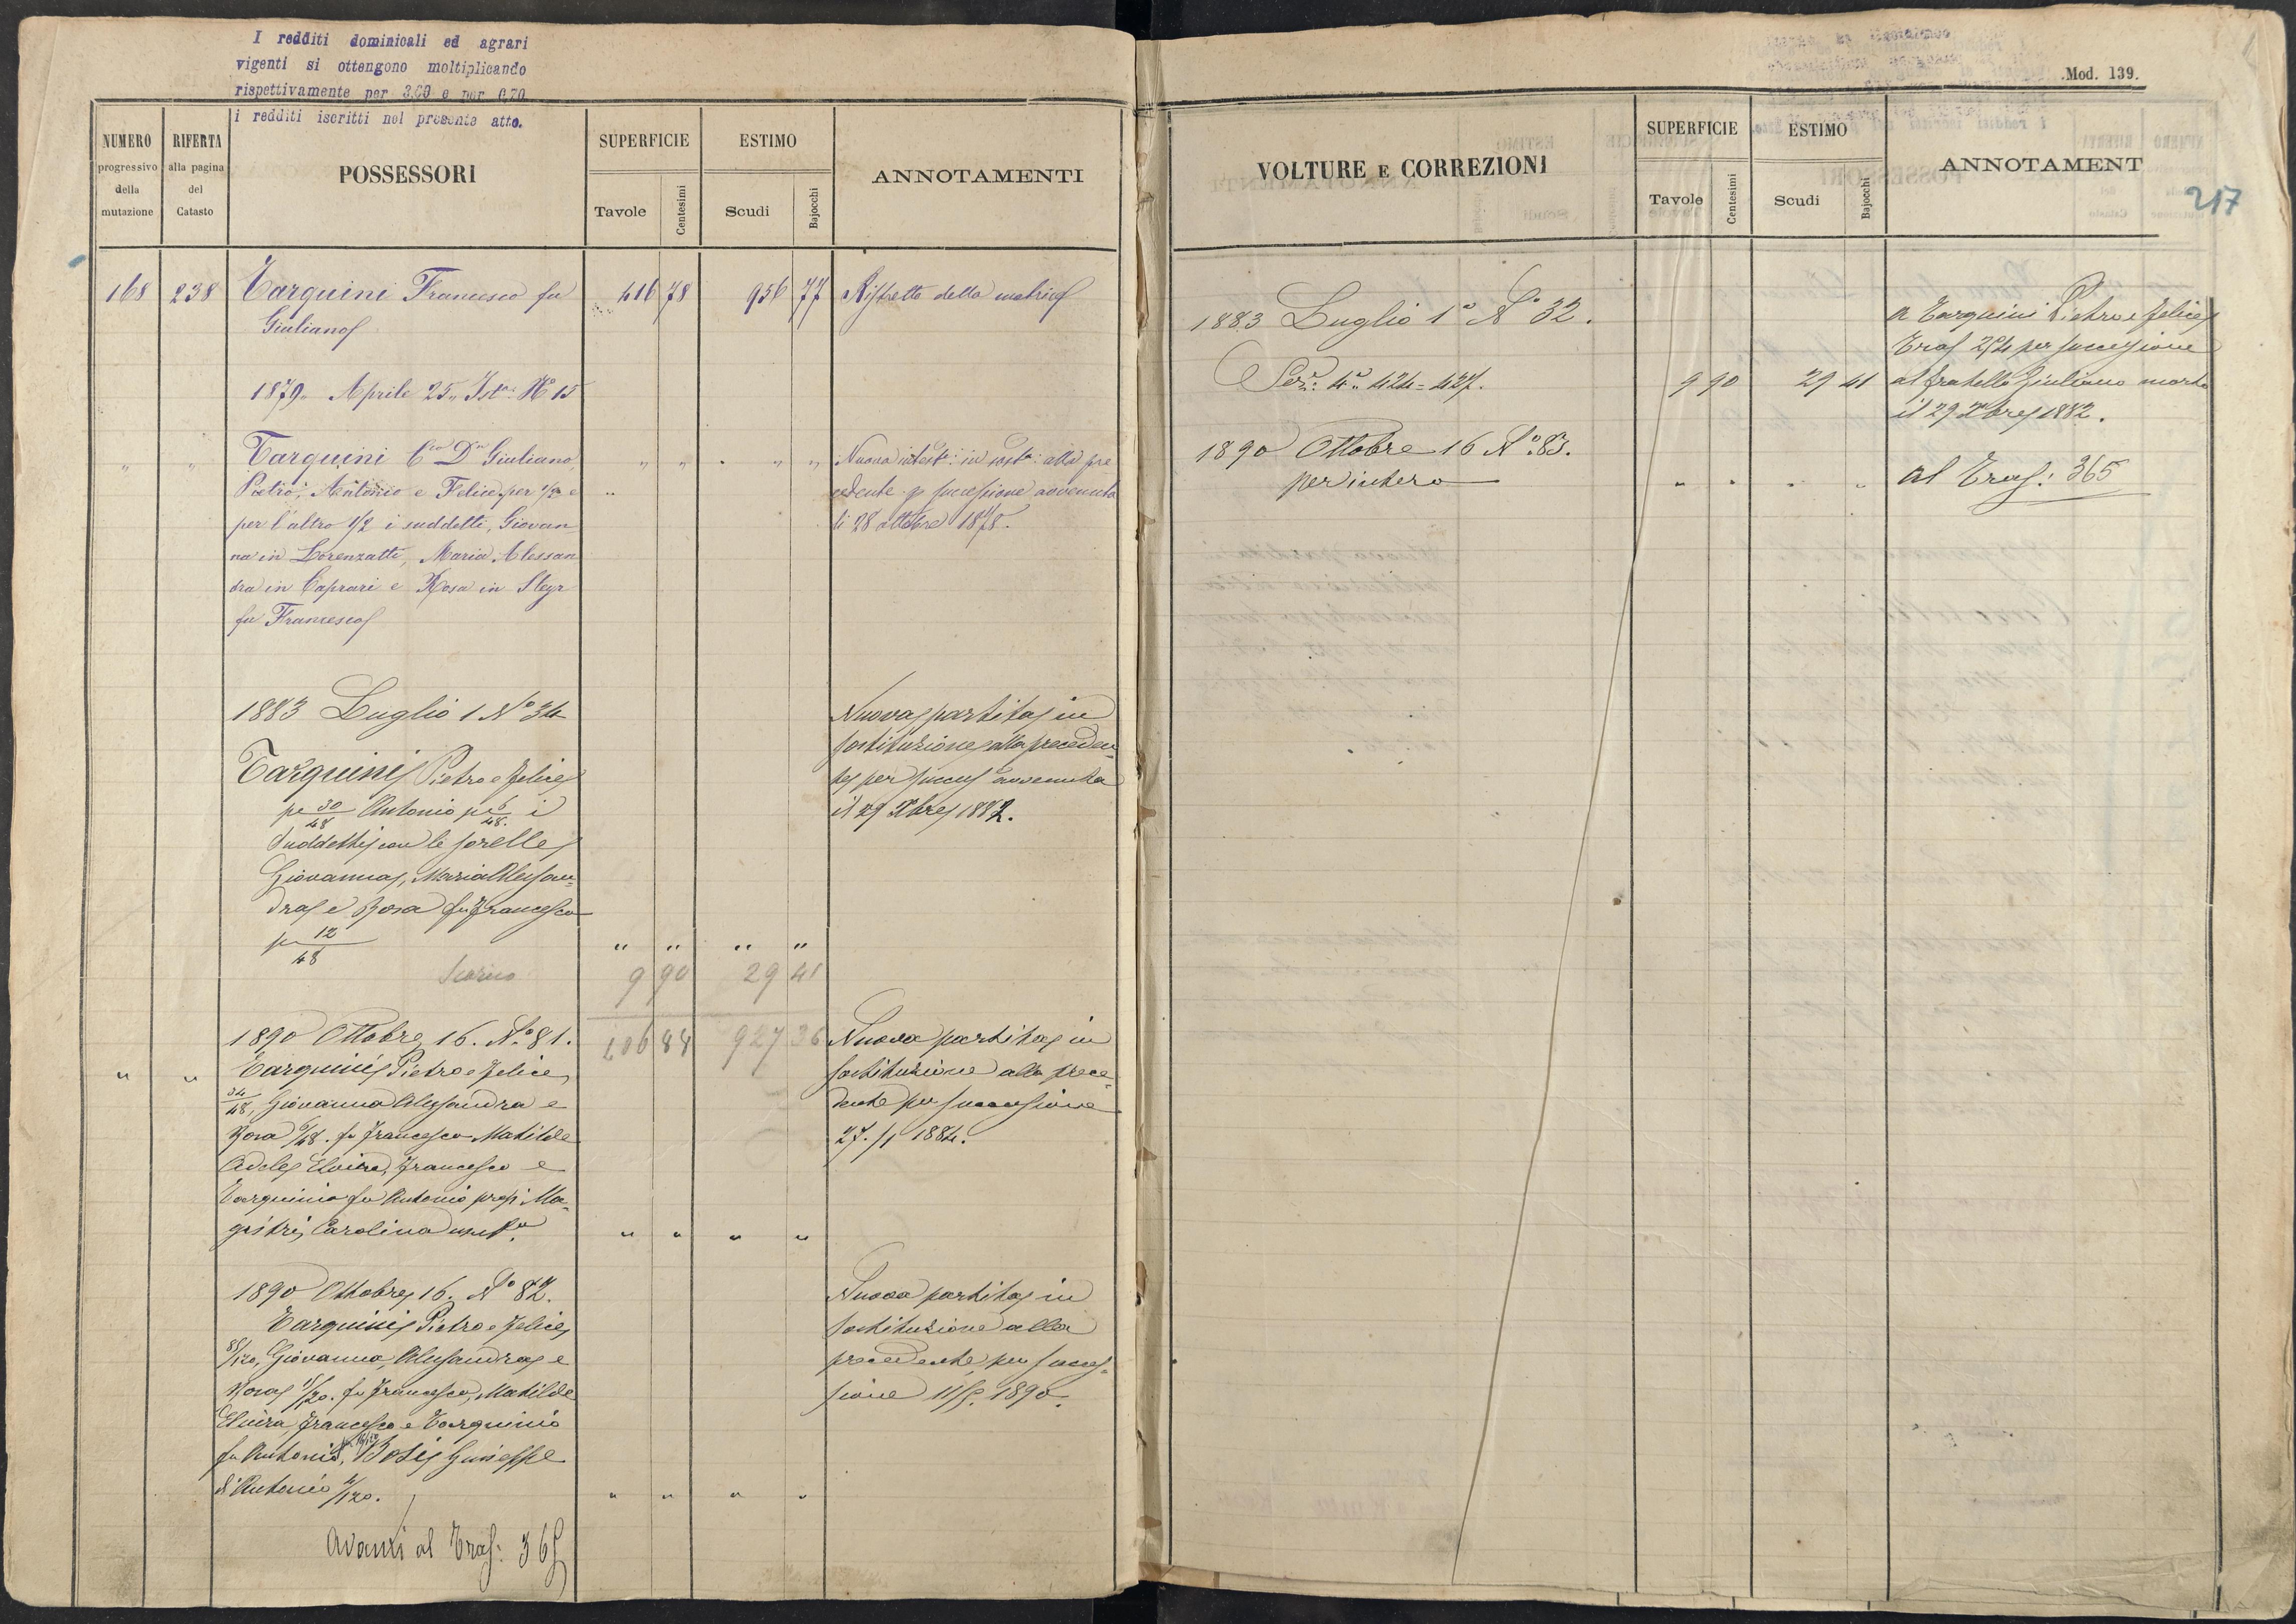 I redditi dominicali ed agrari
vigenti si ottengono moltiplicando
rispettivamente per 3,00 e per 0,70
i redditi iscritti nel presente atto.
NUMERO
progressivo
della
mutazione
RIFERTA
alla pagina
del
Catasto
POSSESSORI
SUPERFICIE
Tavole
Centesimi
ESTIMO
Scudi
Bajocchi
ANNOTAMENTI
168 238 Tarquini Francesco fu 416 78 956 77 Ristretto della matrice
Giuliano
1879. Aprile 25. Ista. N° 15
" " Tarquini Cte Dn Giuliano, " " " " Nuova intest: in sost: alla pre
Pietro, Antonio e Felice per 1/2 e cedente p successione avvenuta
per l'altro 1/2 i suddetti, Giovan li 28 ottobre 1878.
na in Lorenzatti, Maria Alessan
dra in Caprari e Rosa in Steyr
fu Francesco
1883 Luglio 1 N° 34 Nuova partita in
sostituzione alla preceden
Tarquini Pietro e Felice te per success avvenuta
pe 30/48 Antonio pe 6/48. i il 29 Xbre 1882.
Suddetti con le sorelle
Giovanna, Maria Alessan
dra e Rosa fu Francesco
pe 12/48 " " " "
Scarico 9 90 29 41
1890 Ottobre 16. N° 81. 406 88 927 36 Nuova partita in
" " Tarquini Pietro e Felice sostituzione alla prece
34/48, Giovanna Alessandra e dente per successione
Rosa 9/48. fu Francesco Matilde 27./1 1884.
Adele Elvira, Francesco e
Tarquinio fu Antonio prop: Ma
gistri Carolina usufa. " " " "
1890 Ottobre 16. N° 82. Nuova partita in
Tarquini Pietro e Felice sostituzione alla
85/120, Giovanna, Alessandra e precedente per succes
Rosa 15/120. fu Francesco, Matilde sione 1890.
Elvira Francesco e Tarquinio
fu Antonio, Bosi Giuseppe
di Antonio 4/120. " " " "
Avanti al Tras: 365
Mod. 139.
VOLTURE E CORREZIONI
SUPERFICIE
Tavole
Centesimi
ESTIMO
Scudi
Bajocchi
ANNOTAMENT
217
1883 Luglio 1° N° 32. a Tarquini Pietro e Felice
Tras 254 per successione
Sez: 4a 424=427. 9 90 29 41 al fratello Giuliano morto
il 29 Xbre 1882.
1890 Ottobre 16 N° 83.
per intero " " " " al Tras: 365